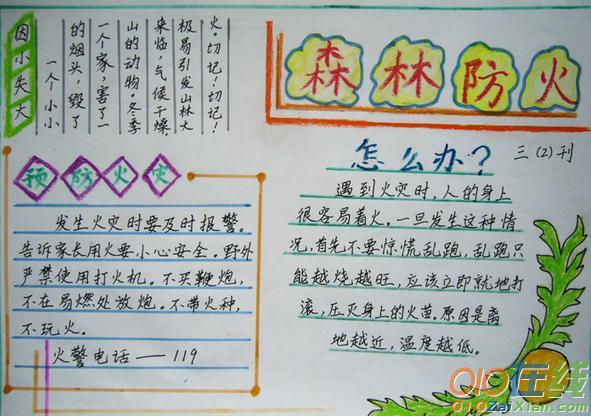 因小失大
一个小小
的烟头,毁了
一个家,害了一
山的动物。冬季
来临,气候干燥
极易引发山林大
火。切记!切记!
森林防火
三(2)刊
预防火灾
发生火灾时要及时报警。
告诉家长用火要小心安全。野外
严禁使用打火机。不买鞭炮,
不在易燃处放炮。不带火种,
不玩火。
火警电话——119
怎么办?
遇到火灾时,人的身上
很容易着火。一旦发生这种情
况,首先不要惊慌乱跑,乱跑只
能越烧越旺,应该立即就地打
滚,压灭身上的火苗。原因是离
地越近,温度越低。
010在线
010ZaiXian.com